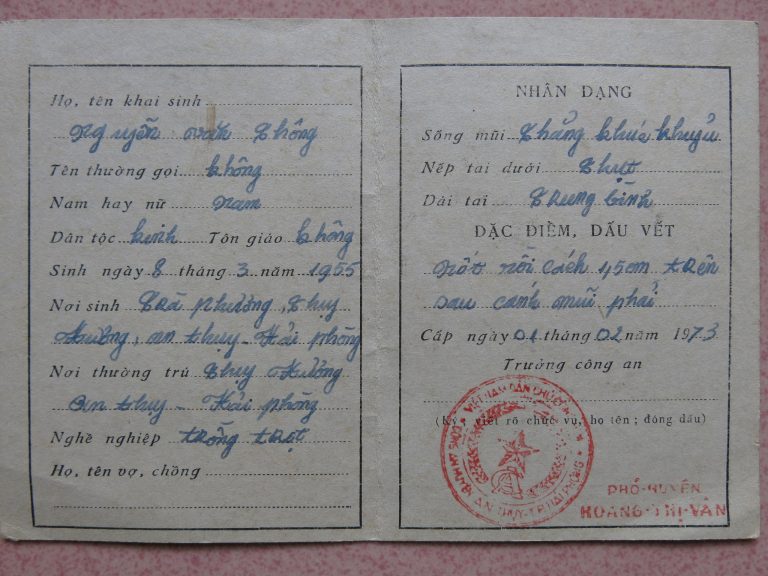 Họ, tên khai sinh
Nguyễn văn Thông
Tên thường gọi không
Nam hay nữ Nam
Dân tộc kinh Tôn giáo không
Sinh ngày 8 tháng 3 năm 1955
Nơi sinh Trà phương, Thụy
Hương, an thụy - Hải phòng
Nơi thường trú Thụy Hương
an thụy - Hải phòng
Nghề nghiệp trồng trọt
Họ, tên vợ, chồng
NHÂN DẠNG
Sống mũi Thẳng khúc khuỷu
Nếp tai dưới Thụt
Dái tai Trung bình
ĐẶC ĐIỂM, DẤU VẾT
Nốt ruồi cách trên
sau cánh mũi phải
Cấp ngày 01 tháng 02 năm 1973
Trưởng công an
(Ký, viết rõ chức vụ, họ tên; đóng dấu)
VIỆT NAM DÂN CHỦ
AN THỤY-T.P HẢI PHÒNG
PHÓ-HUYỆN
HOÀNG-THỊ-VÂN